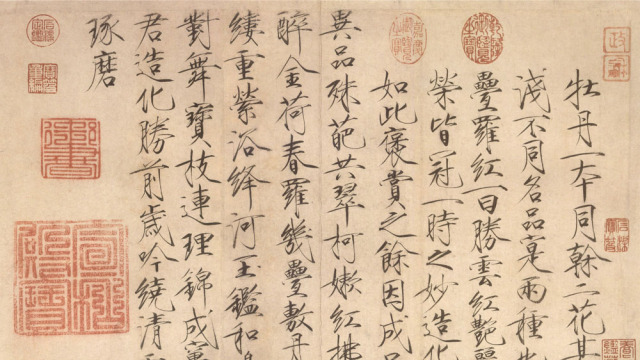 牡丹一本同榦二花其
淺不同名品寔兩種
疊羅紅一曰勝雲紅艷
榮皆冠一時之妙造化
如此褒賞之餘因成
異品殊葩共翠柯嫩紅拂
醉金荷春羅幾疊敷丹
縷重縈浴絳河玉鑑和
對舞寶枝連理錦成窠
君造化勝前歲吟繞清
琢磨